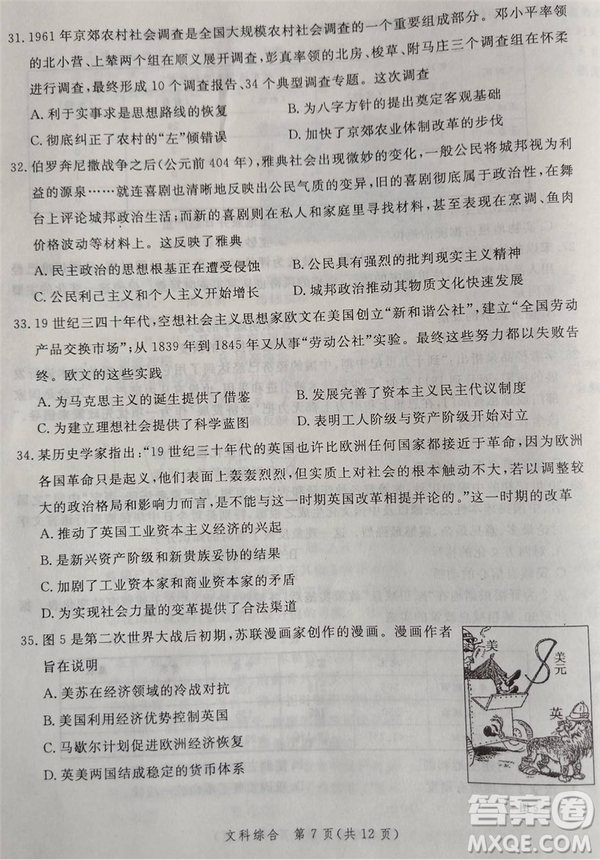 31.1961年京郊农村社会调查是全国大规模农村社会调查的一个重要组成部分。邓小平率领
的北小营、上辇两个组在顺义展开调查,彭真率领的北房、梭草、附马庄三个调查组在怀柔
进行调查,最终形成10个调查报告、34个典型调查专题。这次调查
A.利于实事求是思想路线的恢复
B.为八字方针的提出奠定客观基础
C.彻底纠正了农村的“左”倾错误
D.加快了京郊农业体制改革的步伐
32.伯罗奔尼撒战争之后(公元前404年),雅典社会出现微妙的变化,一般公民将城邦视为利
益的源泉……就连喜剧也清晰地反映出公民气质的变异,原来的喜剧是公民在公共的舞
台上评论城邦政治生活;而新的喜剧在私人和家庭里寻找灵感,甚至表现在烹调、鱼肉
价格波动等材料上。这反映了雅典
A.民主政治的思想根基正在遭受侵蚀
B.公民具有强烈的批判现实主义精神
C.公民利己主义和个人主义开始增长
D.城邦政治推动其物质文化快速发展
33.19世纪三四十年代,空想社会主义思想家欧文在美国创立“新和谐公社”,建立“全国劳动
产品交换市场”;从1839年到1845年又从事“劳动公社”实验。最终,实践都以失败告
终。欧文的这些实践
A.为马克思主义的诞生提供了借鉴
B.发展完善了资本主义民主代议制度
C.为建立理想社会提供了科学蓝图
D.表明工人阶级与资产阶级矛盾尖锐
34.某历史学家指出:“19世纪三十年代的英国也许比欧洲任何国家都接近于革命,因为欧洲
各国革命只是表面上轰轰烈烈,但实际上对社会的根本性结构触动不大,若以调整较大
的政治格局和影响而言,是不能与这一时期英国改革相提并论的。”这一时期的改革
A.推动了英国工业资本主义经济的兴起
B.是新兴资产阶级和新贵族妥协的结果
C.加剧了工业资本家和工商业者的矛盾
D.为社会力量的变革提供了合法渠道
35.图5是第二次世界大战后初期,苏联漫画家创作的漫画。漫画作者
旨在说明
A.美苏在经济领域的冷战对抗
B.美国利用经济优势控制英国
C.马歇尔计划促进欧洲经济恢复
D.英美两国结成稳定的货币体系
美
美元
英
图5
文科综合 第7页(共12页)
答案圈
MXQE.COM